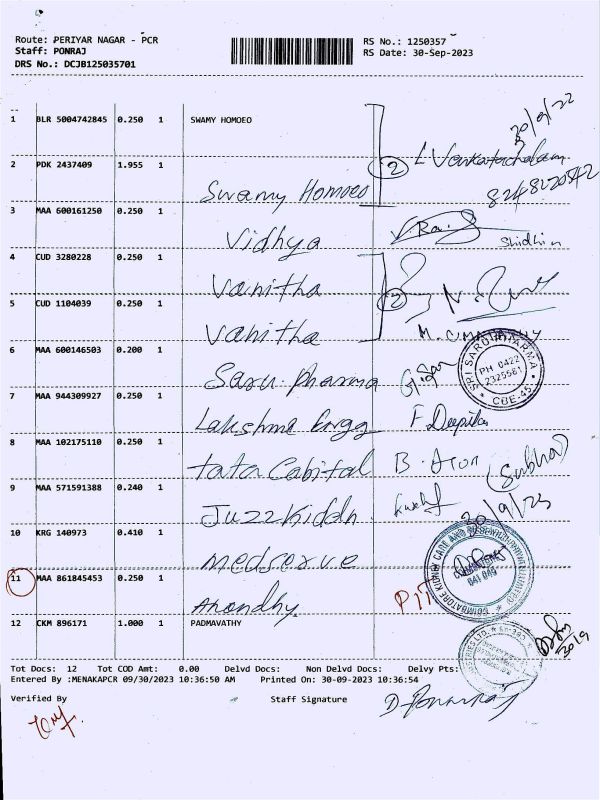 Route: PERIYAR NAGAR - PCR
Staff: PONRAJ
DRS No.: DCJB125035701
RS No.: 1250357
RS Date: 30-Sep-2023
1 BLR 5004742845 0.250 1 SWAMY HOMOEO
30/9/22
2 PDK 2437409 1.955 1 Swamy Homoeo 2 L Venkatachalam
8248220542
3 MAA 600161250 0.250 1 Vidhya V.Ra
4 CUD 3280228 0.250 1 Vanitha 2
5 CUD 1104039 0.250 1 Vanitha
M. UMAPATHY
6 MAA 600146503 0.200 1 Saru Pharma
SRI SARU PHARMA
PH 0422
2325561
CBE-45
7 MAA 944309927 0.250 1 Lakshma Engg F Deepika
8 MAA 102175110 0.250 1 tata Cabital B. Arun (Subha)
9 MAA 571591388 0.240 1 Juzz Kiddn
30/9/23
10 KRG 140973 0.410 1 medserve
COIMBATORE KIDNEY CARE AND
11 MAA 861845453 0.250 1 Anandhy
12 CKM 896171 1.000 1 PADMAVATHY
30/9
Tot Docs: 12 Tot COD Amt: 0.00 Delvd Docs: Non Delvd Docs: Delvy Pts:
Entered By :MENAKAPCR 09/30/2023 10:36:50 AM Printed On: 30-09-2023 10:36:54
Verified By Staff Signature
D. Ponnraj